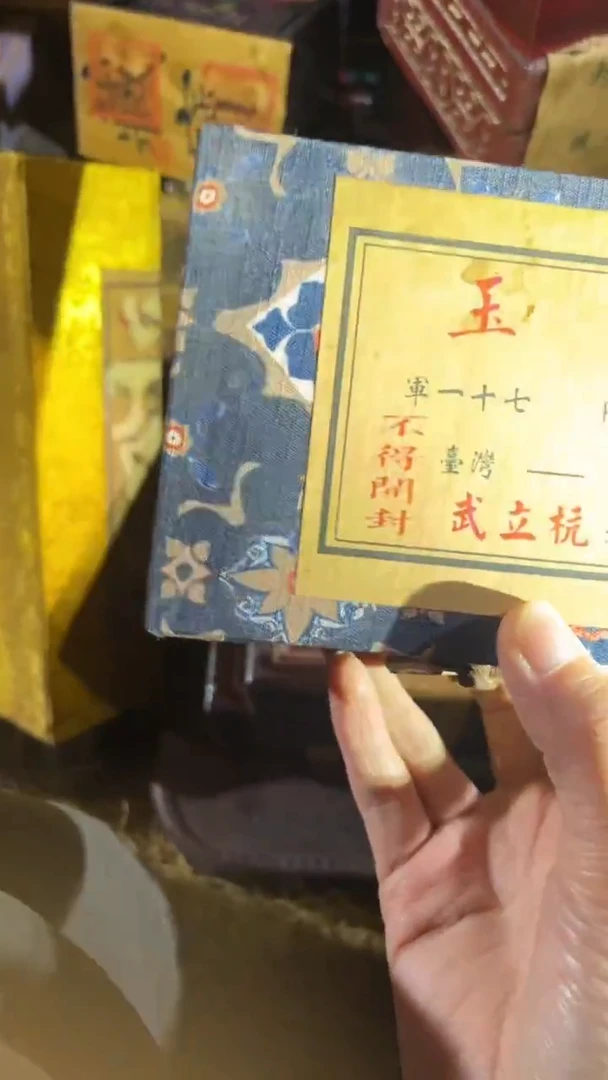 玉
軍一十七
不得開封
臺灣 —
武立杭